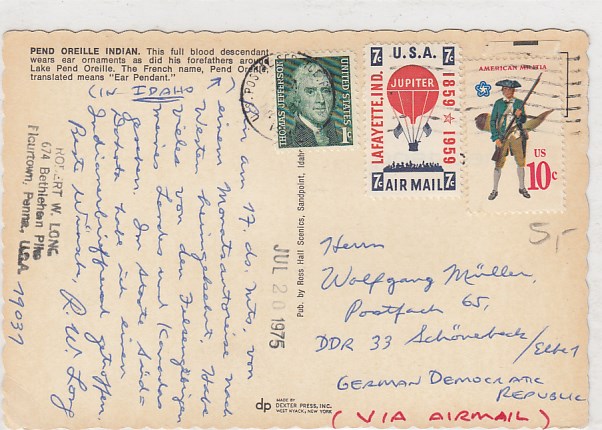 PEND OREILLE INDIAN. This full blood descendant
wears ear ornaments as did his forefathers around
Lake Pend Oreille. The French name, Pend Oreille,
translated means "Ear Pendant."
(IN IDAHO
Bin am 17. ds. Mts. von
einem Monatsautoreise nach
Westen heimgekehrt. Habe
vieles von den Felsengebirgen
meines Landes und Kanadas
gesehen. Im Staate Süd=
Dakota habe ich einen
Indianerbrieffreund getroffen.
Beste Wünsche, R. W. Long
ROBERT W. LONG
674 Bethlehem Pike
Flourtown, Penna., USA
19031
JUL 20 1975
Pub. by Ross Hall Scenics, Sandpoint, Idaho
dp
MADE BY
DEXTER PRESS, INC.
WEST NYACK, NEW YORK
THOMAS JEFFERSON
UNITED STATES
1c
7c U.S.A. 7c
LAFAYETTE, IND.
JUPITER
1859 1959
7c AIR MAIL 7c
AMERICAN MILITIA
US
10c
5,-
Herrn
Wolfgang Müller,
Postfach 65,
DDR 33 Schönebeck/Elbe 1
GERMAN DEMOCRATIC
REPUBLIC
(VIA AIRMAIL)